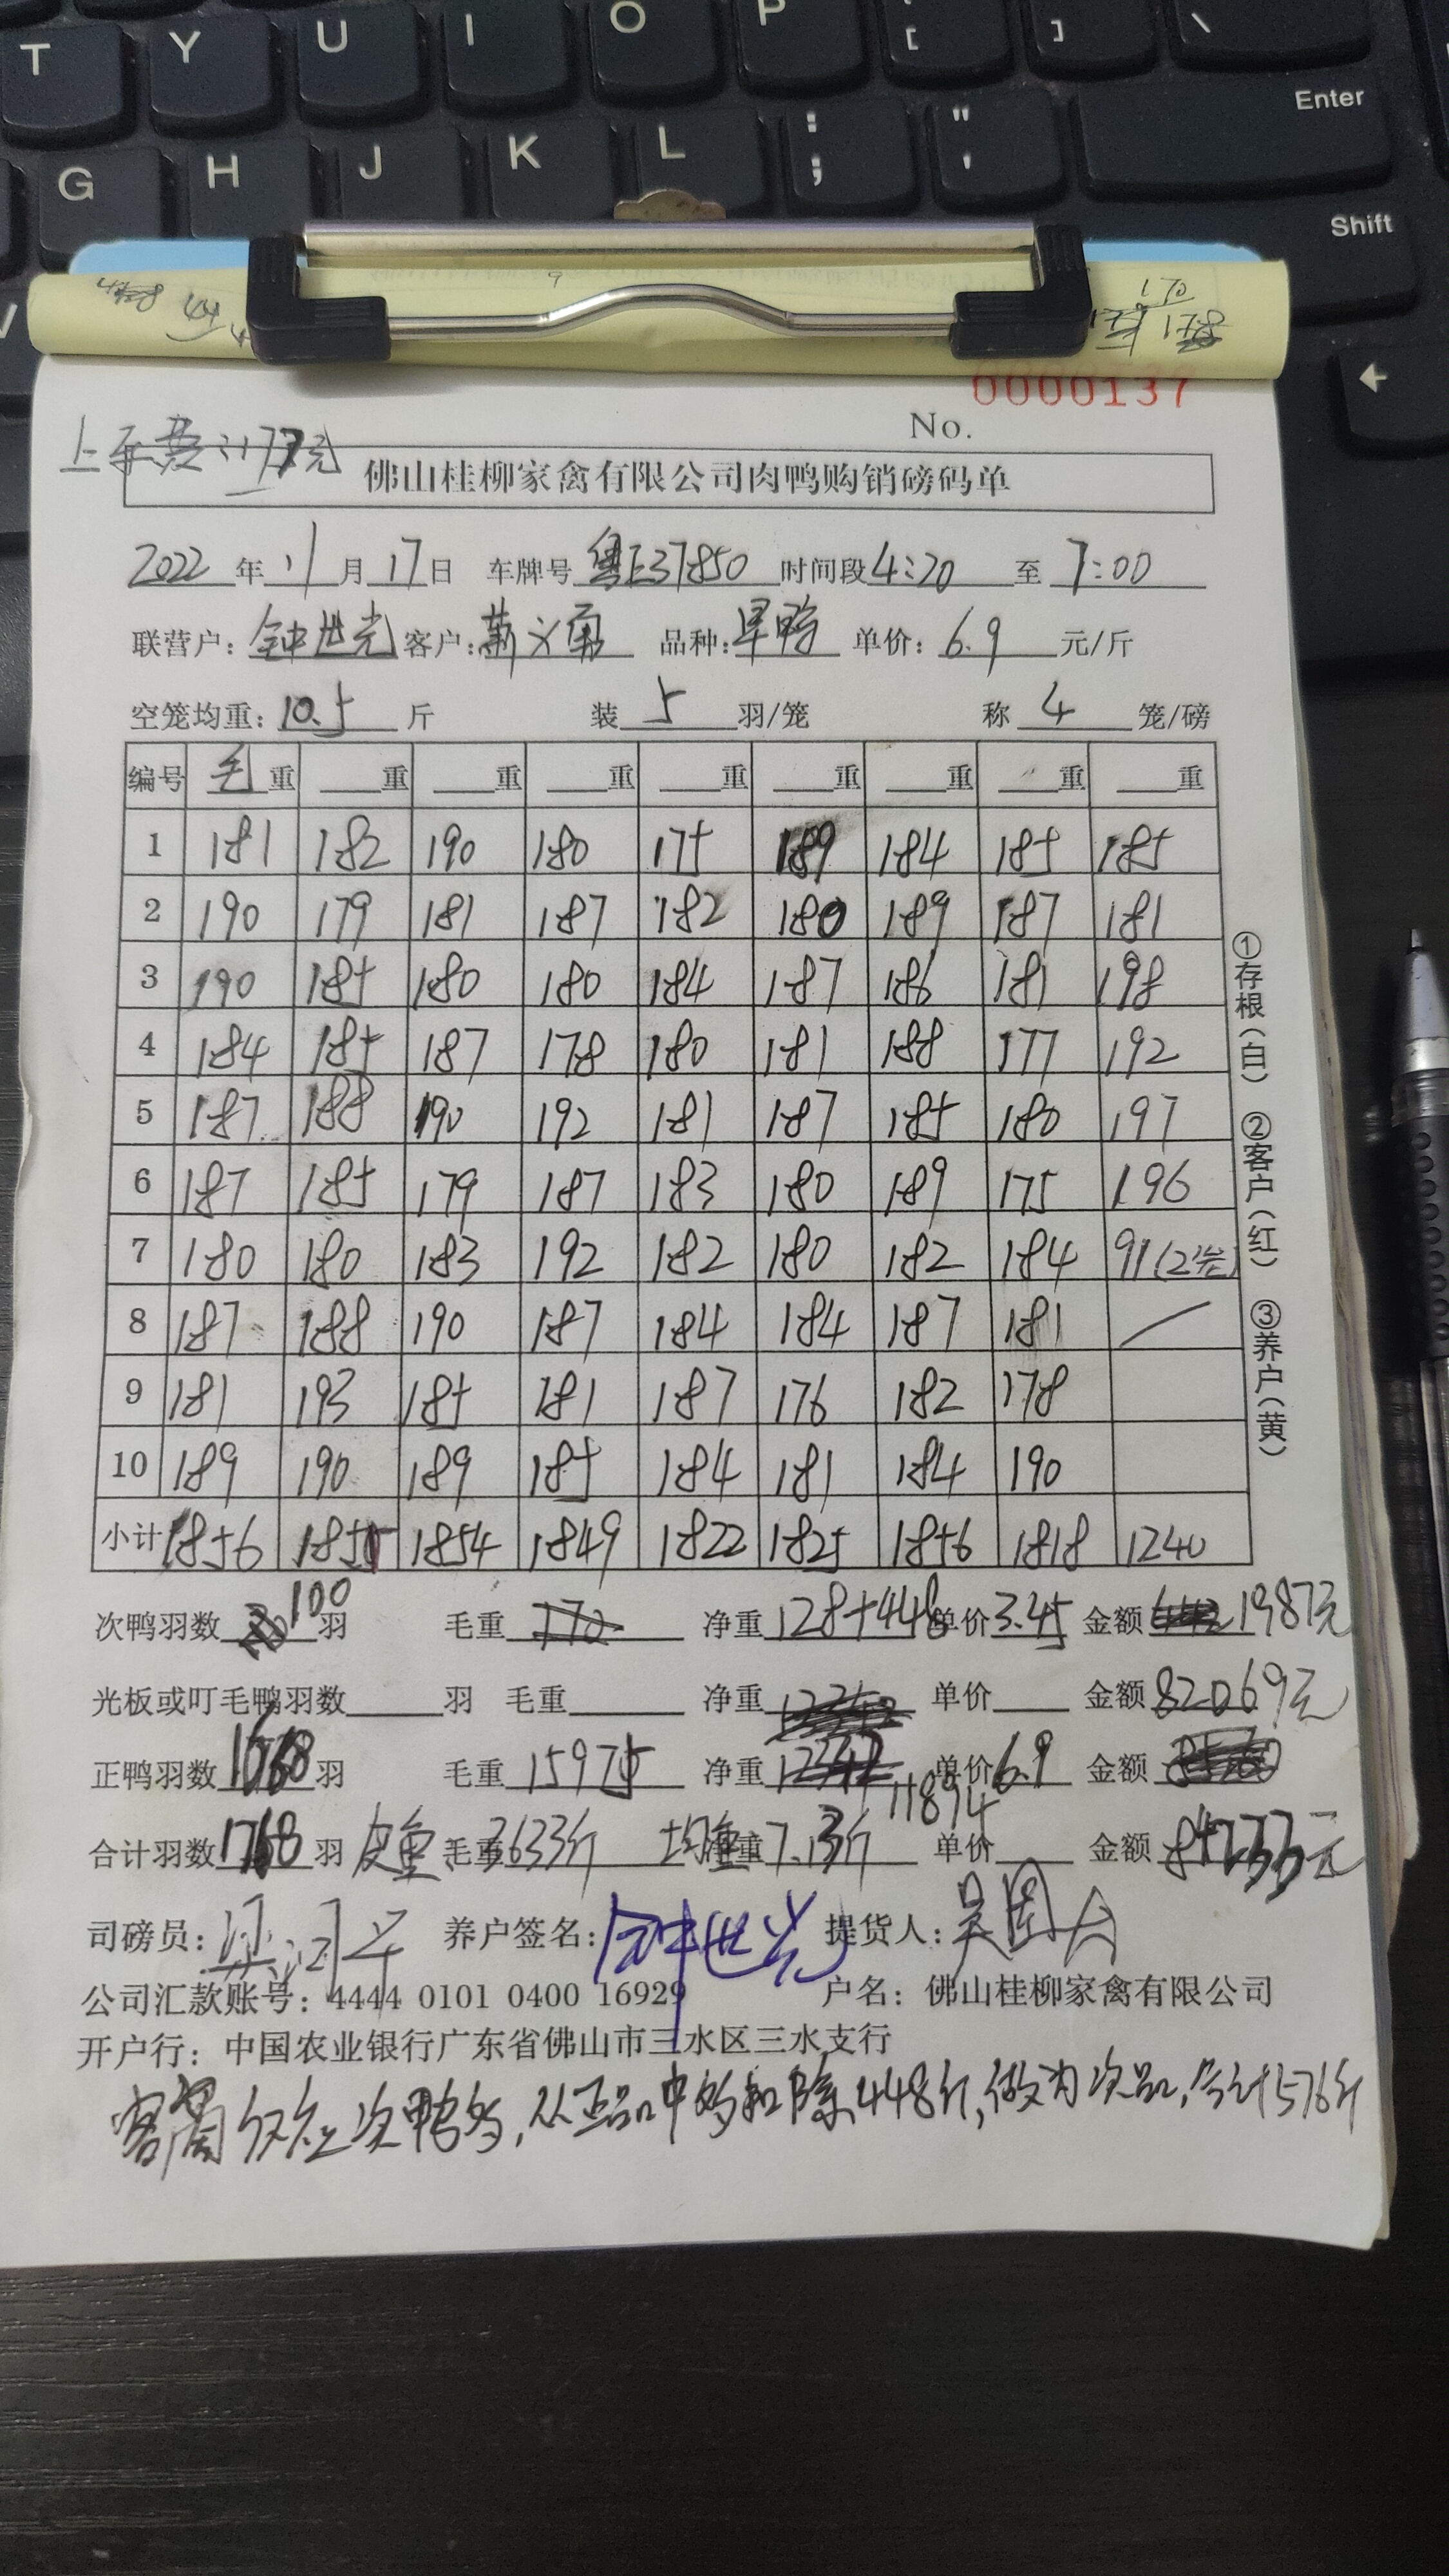 T Y U I O P [ ] \
Enter
G H J K L : ; " '
Shift
No. 0000137
上车费:177元
佛山桂柳家禽有限公司肉鸭购销磅码单
2022 年 11 月 17 日 车牌号 粤E37850 时间段 4:20 至 7:00
联营户: 钟世光 客户: 品种: 旱鸭 单价: 6.9 元/斤
空笼均重: 10.5 斤 装 5 羽/笼 称 4 笼/磅
编号 毛重 重 重 重 重 重 重 重 重
1 181 182 190 180 175 189 184 185 185
2 190 179 181 187 182 180 189 187 181
3 190 185 180 180 184 187 186 181 198
4 184 185 187 178 180 181 188 177 192
5 187 188 190 192 181 187 185 180 197
6 187 185 179 187 183 180 189 175 196
7 180 180 183 192 182 180 182 184 91(2笼)
8 187 188 190 187 184 184 187 181
9 181 193 185 181 187 176 182 178
10 189 190 189 185 184 181 184 190
小计 1856 1855 1854 1849 1822 1825 1856 1818 1240
①存根(白) ②客户(红) ③养户(黄)
次鸭羽数 100 羽 毛重 172 净重 128+448 单价 3.45 金额 1987元
光板或叮毛鸭羽数 羽 毛重 净重 单价 金额 82069元
正鸭羽数 1668 羽 毛重 15975 净重 12342 11894 单价 6.9 金额
合计羽数 1768 羽 皮重 毛重 3633斤 均重 净重 7.13斤 单价 金额 84233元
司磅员: 养户签名: 钟世光 提货人:
公司汇款账号: 4444 0101 0400 16929 户名: 佛山桂柳家禽有限公司
开户行: 中国农业银行广东省佛山市三水区三水支行
次鸭多,从正品中扣除448斤,做为次品,合计576斤